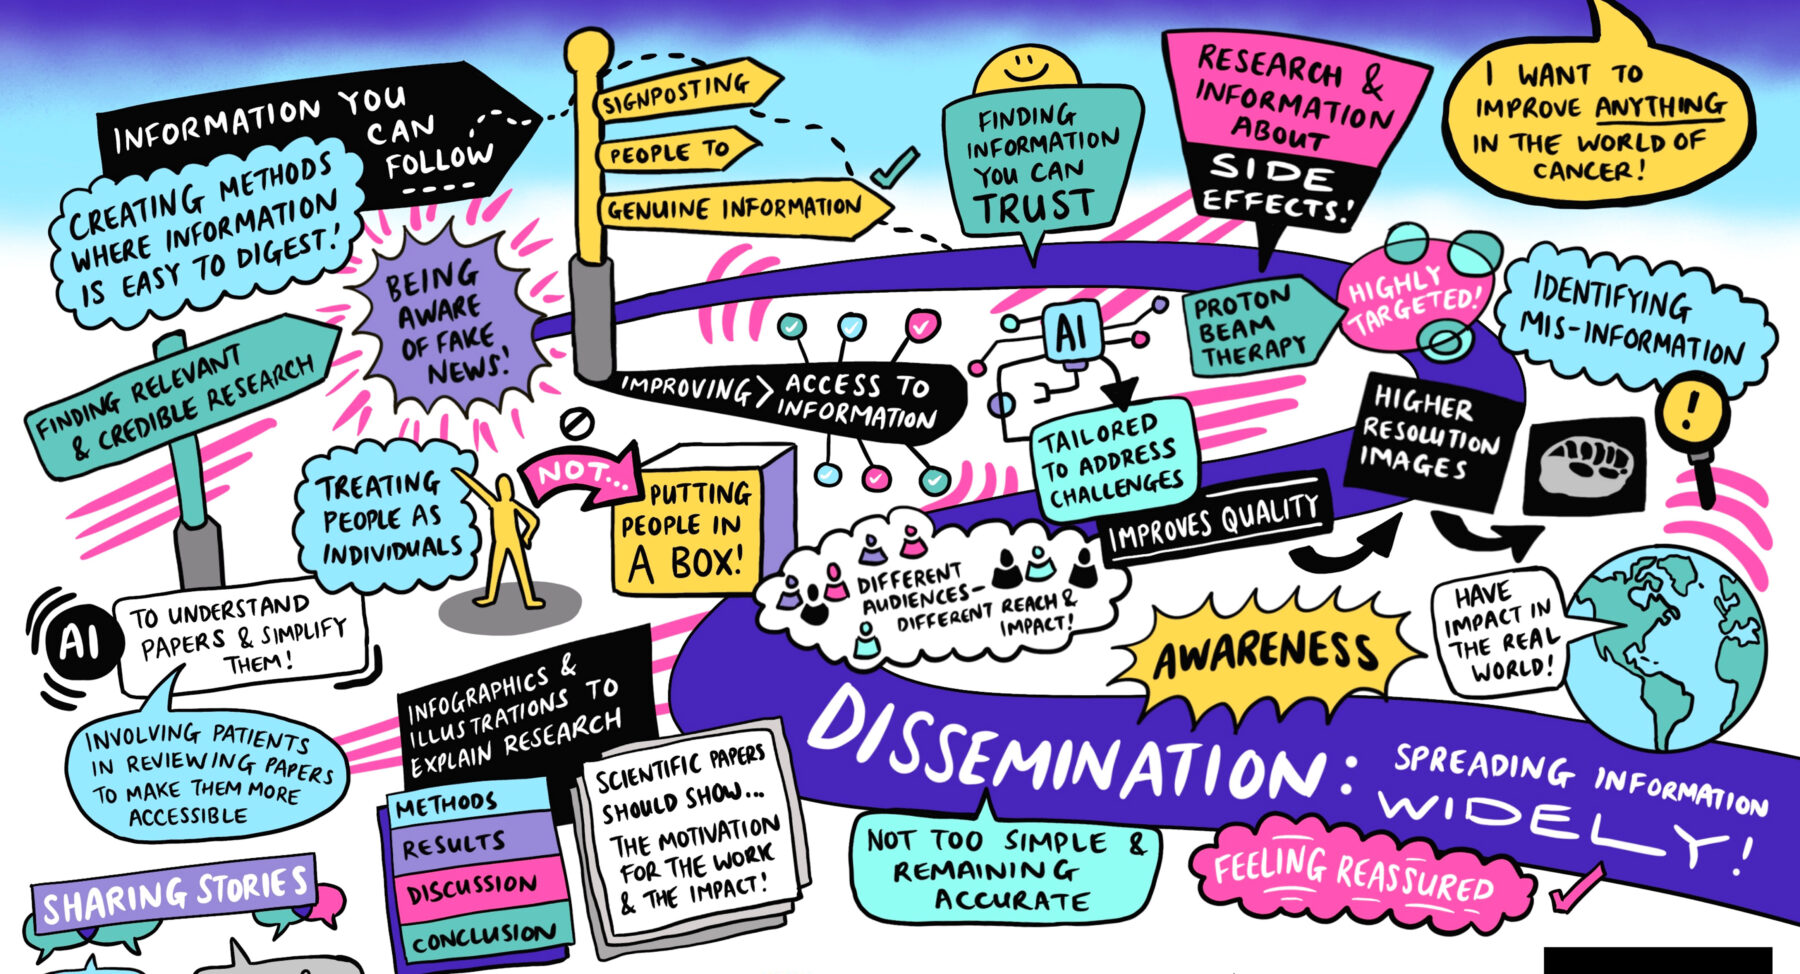 INFORMATION YOU
CAN
FOLLOW
SIGNPOSTING
PEOPLE TO
GENUINE INFORMATION
FINDING
INFORMATION
YOU CAN
TRUST
RESEARCH &
INFORMATION
ABOUT
SIDE
EFFECTS!
I WANT TO
IMPROVE ANYTHING
IN THE WORLD OF
CANCER!
CREATING METHODS
WHERE INFORMATION
IS EASY TO DIGEST!
BEING
AWARE
OF FAKE
NEWS!
FINDING RELEVANT
& CREDIBLE RESEARCH
IMPROVING > ACCESS TO
INFORMATION
AI
TAILORED
TO ADDRESS
CHALLENGES
PROTON
BEAM
THERAPY
HIGHLY
TARGETED!
IDENTIFYING
MIS-INFORMATION
!
HIGHER
RESOLUTION
IMAGES
IMPROVES QUALITY
TREATING
PEOPLE AS
INDIVIDUALS
NOT...
PUTTING
PEOPLE IN
A BOX!
DIFFERENT
AUDIENCES-
DIFFERENT REACH &
IMPACT!
AWARENESS
HAVE
IMPACT IN
THE REAL
WORLD!
AI
TO UNDERSTAND
PAPERS & SIMPLIFY
THEM!
INVOLVING PATIENTS
IN REVIEWING PAPERS
TO MAKE THEM MORE
ACCESSIBLE
INFOGRAPHICS &
ILLUSTRATIONS TO
EXPLAIN RESEARCH
METHODS
RESULTS
DISCUSSION
CONCLUSION
SCIENTIFIC PAPERS
SHOULD SHOW...
THE MOTIVATION
FOR THE WORK
& THE IMPACT!
DISSEMINATION: SPREADING INFORMATION
WIDELY!
NOT TOO SIMPLE &
REMAINING
ACCURATE
FEELING REASSURED
SHARING STORIES